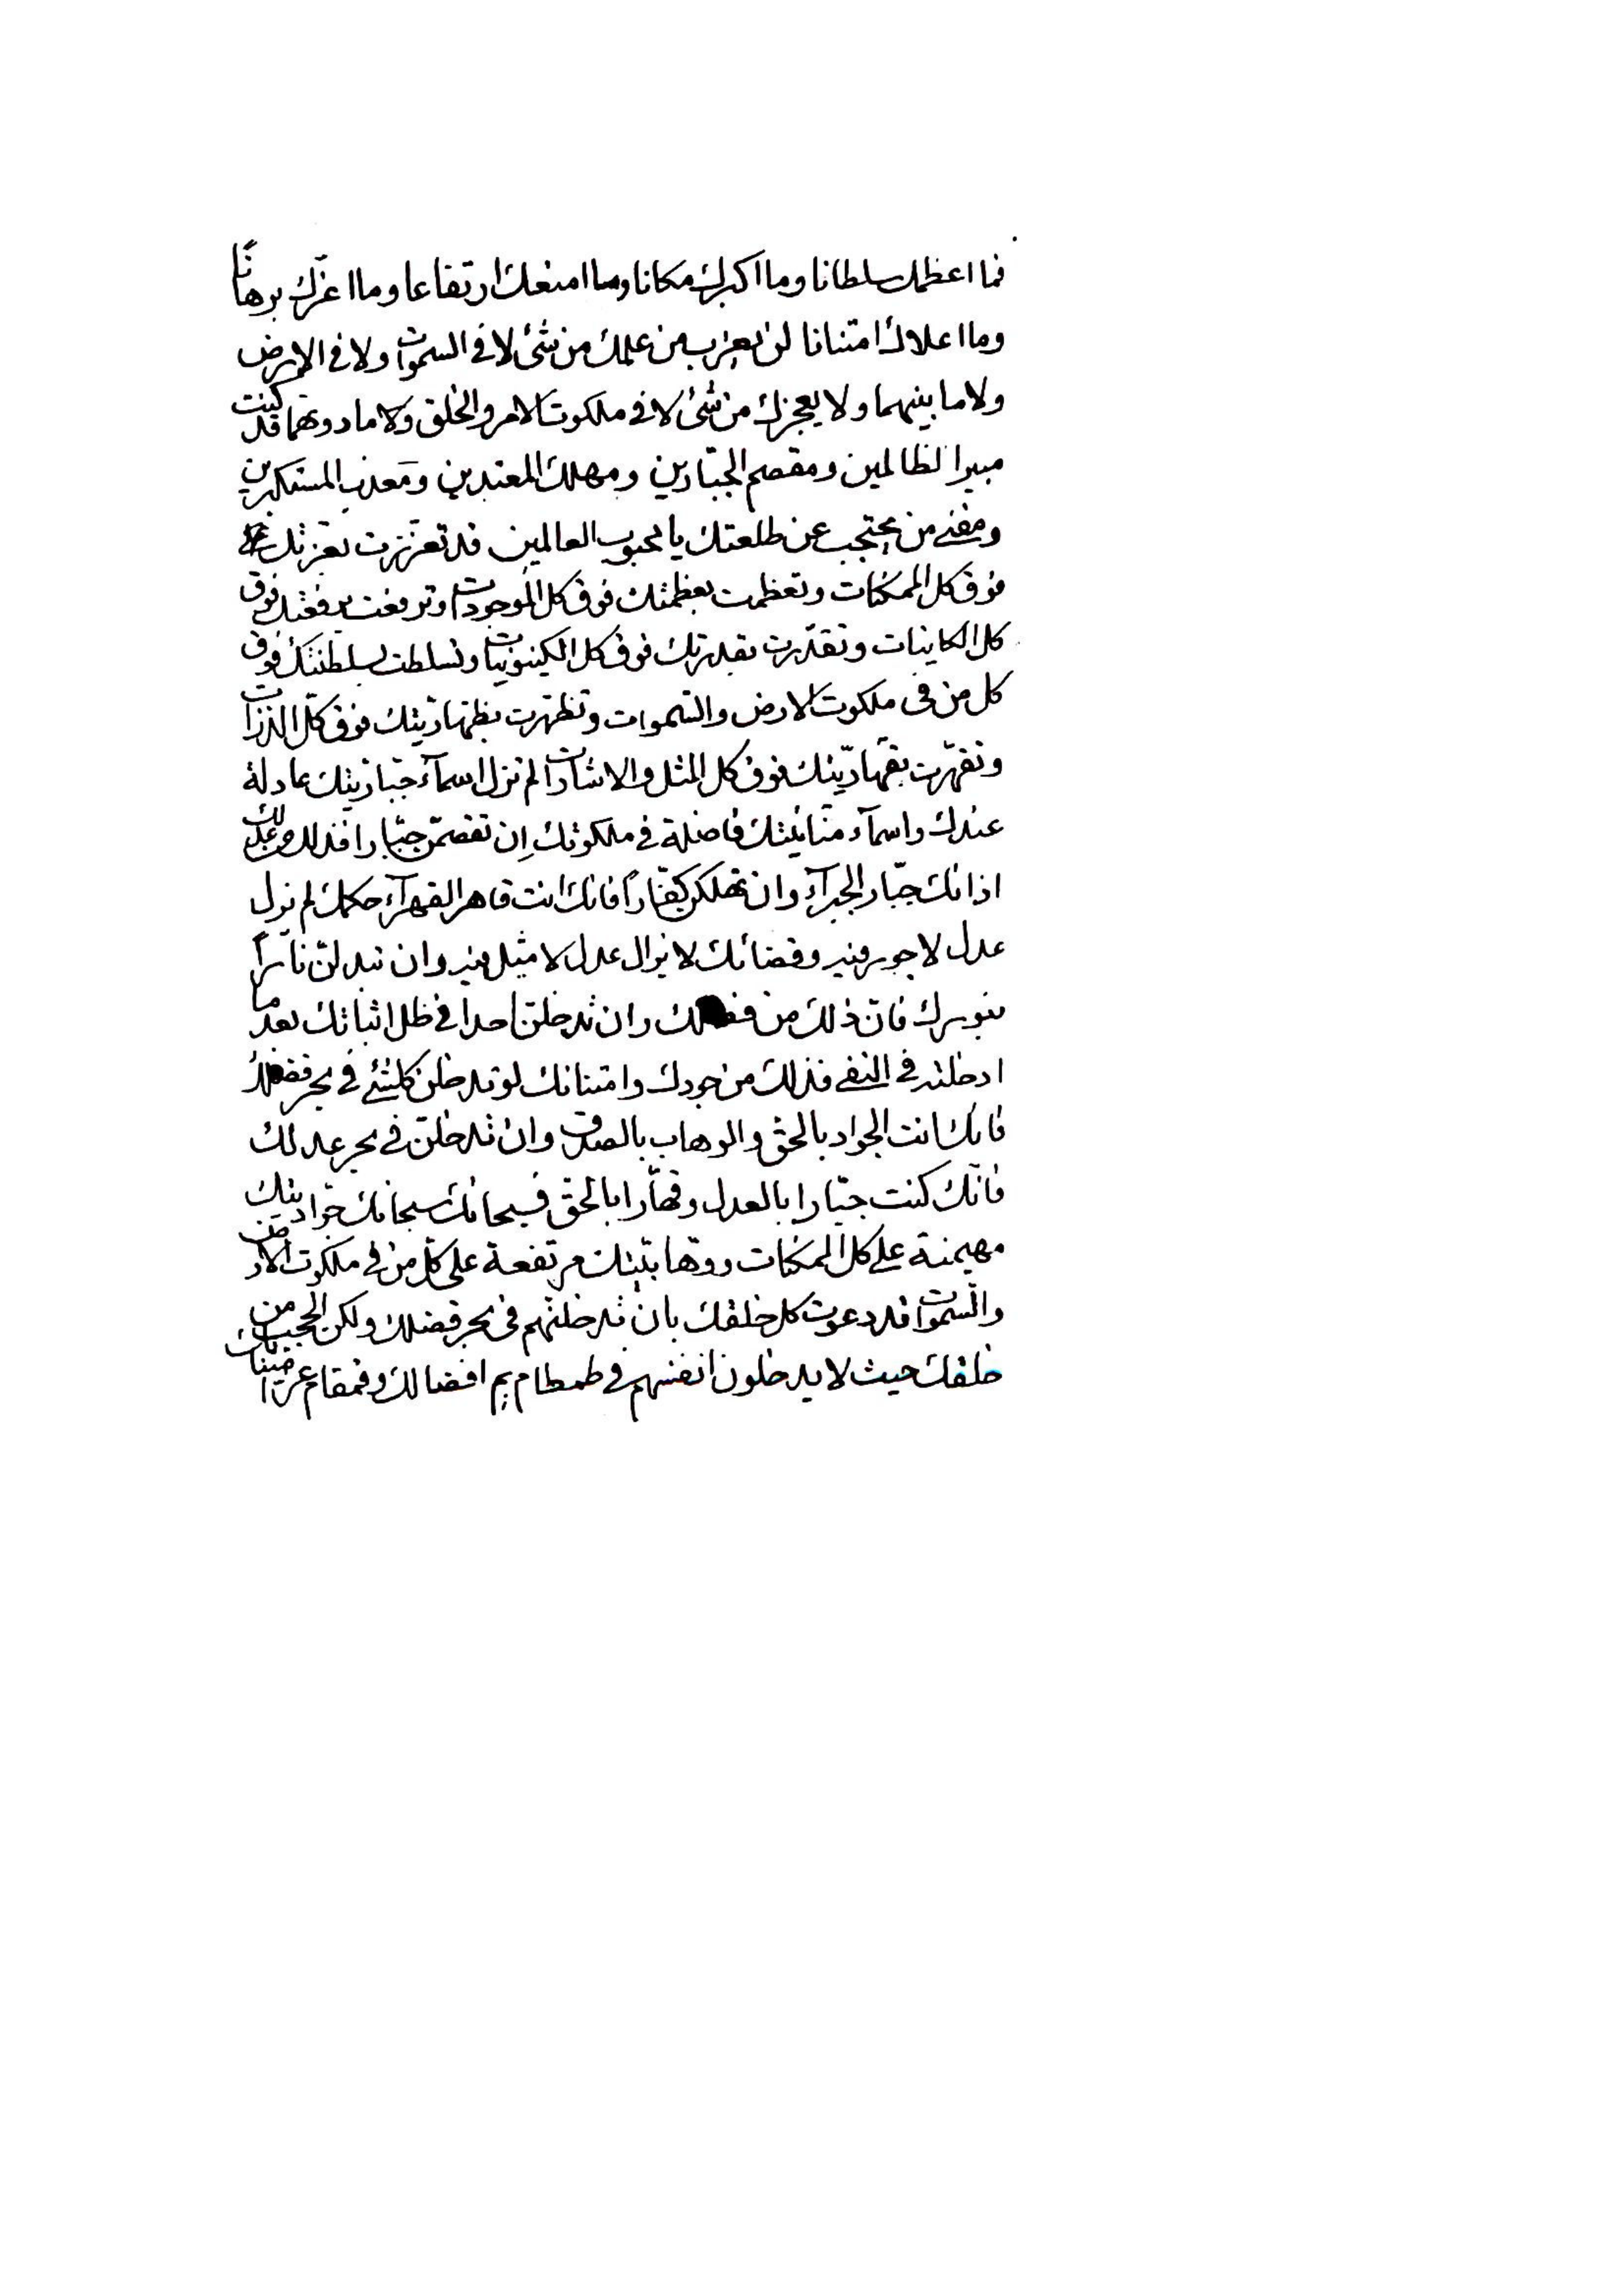 فما اعظمك سلطانا وما اكبرك مكانا وما امنعك ارتفاعا وما اعزّك برهانًا
وما اعلاك امتنانا لن يعزب من علمك من شئ لا فى السموات ولا فى الارض
ولا ما بينهما ولا يعجزك من شئ لا فى ملكوت الامر والخلق ولا ما دونهما قد كنت
مبير الظالمين ومقصم الجبّارين ومهلك المعتدين ومعذب المستكبرين
ومفنى من يحتجب عن طلعتك يا محبوب العالمين قد تعزّزت بعزتك
فوق كل الممكنات وتعظمت بعظمتك فوق كل الموجودات وترفعت برفعتك فوق
كل الكاينات وتقدّرت بقدرتك فوق كل الكينونيات وتسلطت بسلطنتك فوق
كل من فى ملكوت الارض والسّموات وتظهّرت بظهّاريّتك فوق كلّ الذرّات
وتقهّرت بقهّاريّتك فوق كل المثل والاشارات لم تزل اسمآء جبّاريّتك عادلة
عندك واسمآء منّانيّتك فاضلة فى ملكوتك إن تقصمّن جبّارا فذلك من عدلك
اذ انك جبّار الجبرآء وان تهلكن كفّاراً فانك انت قاهر القهرآء حكمك لم نزل
عدل لا جور فيه وقضائك لا يزال عدل لا ميل فيه وان تبدلنّ ناراً
بنورك فانّ ذلك من فضلك وان تدخلنّ احدا فى ظل اثباتك بعد ما
ادخلته فى النفى فذلك من جودك وامتنانك لو تدخلن كلشئ فى بحر فضلك
فانك انت الجواد بالحق والوهاب بالصدق وان تدخلنّ فى بحر عدلك
فانّك كنت جبّارا بالعدل وقهّارا بالحقّ فسبحانك سبحانك جوّاديتك
مهيمنة على كل الممكنات ووهّابيّتك مرتفعة على كلّ من فى ملكوت الارض
والسّموات قد دعوت كل خلقك بان تدخلنّهم فى بحر فضلك ولكن الحجب من
خلقك حيث لا يدخلون انفسهم فى طمطام يم افضالك وقمقام عزّ